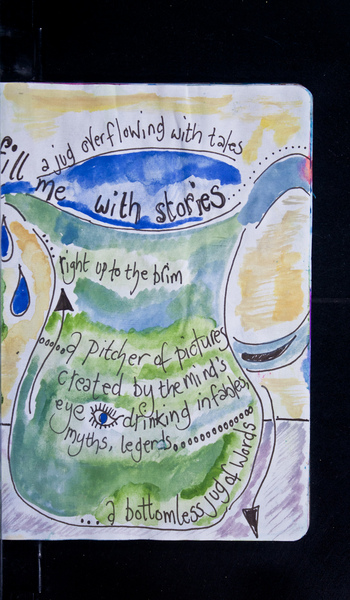 a jug overflowing with tales
fill me with stories
right up to the brim
a pitcher of pictures
created by the mind's
eye drinking in fables,
myths, legends...........
...a bottomless jug of words